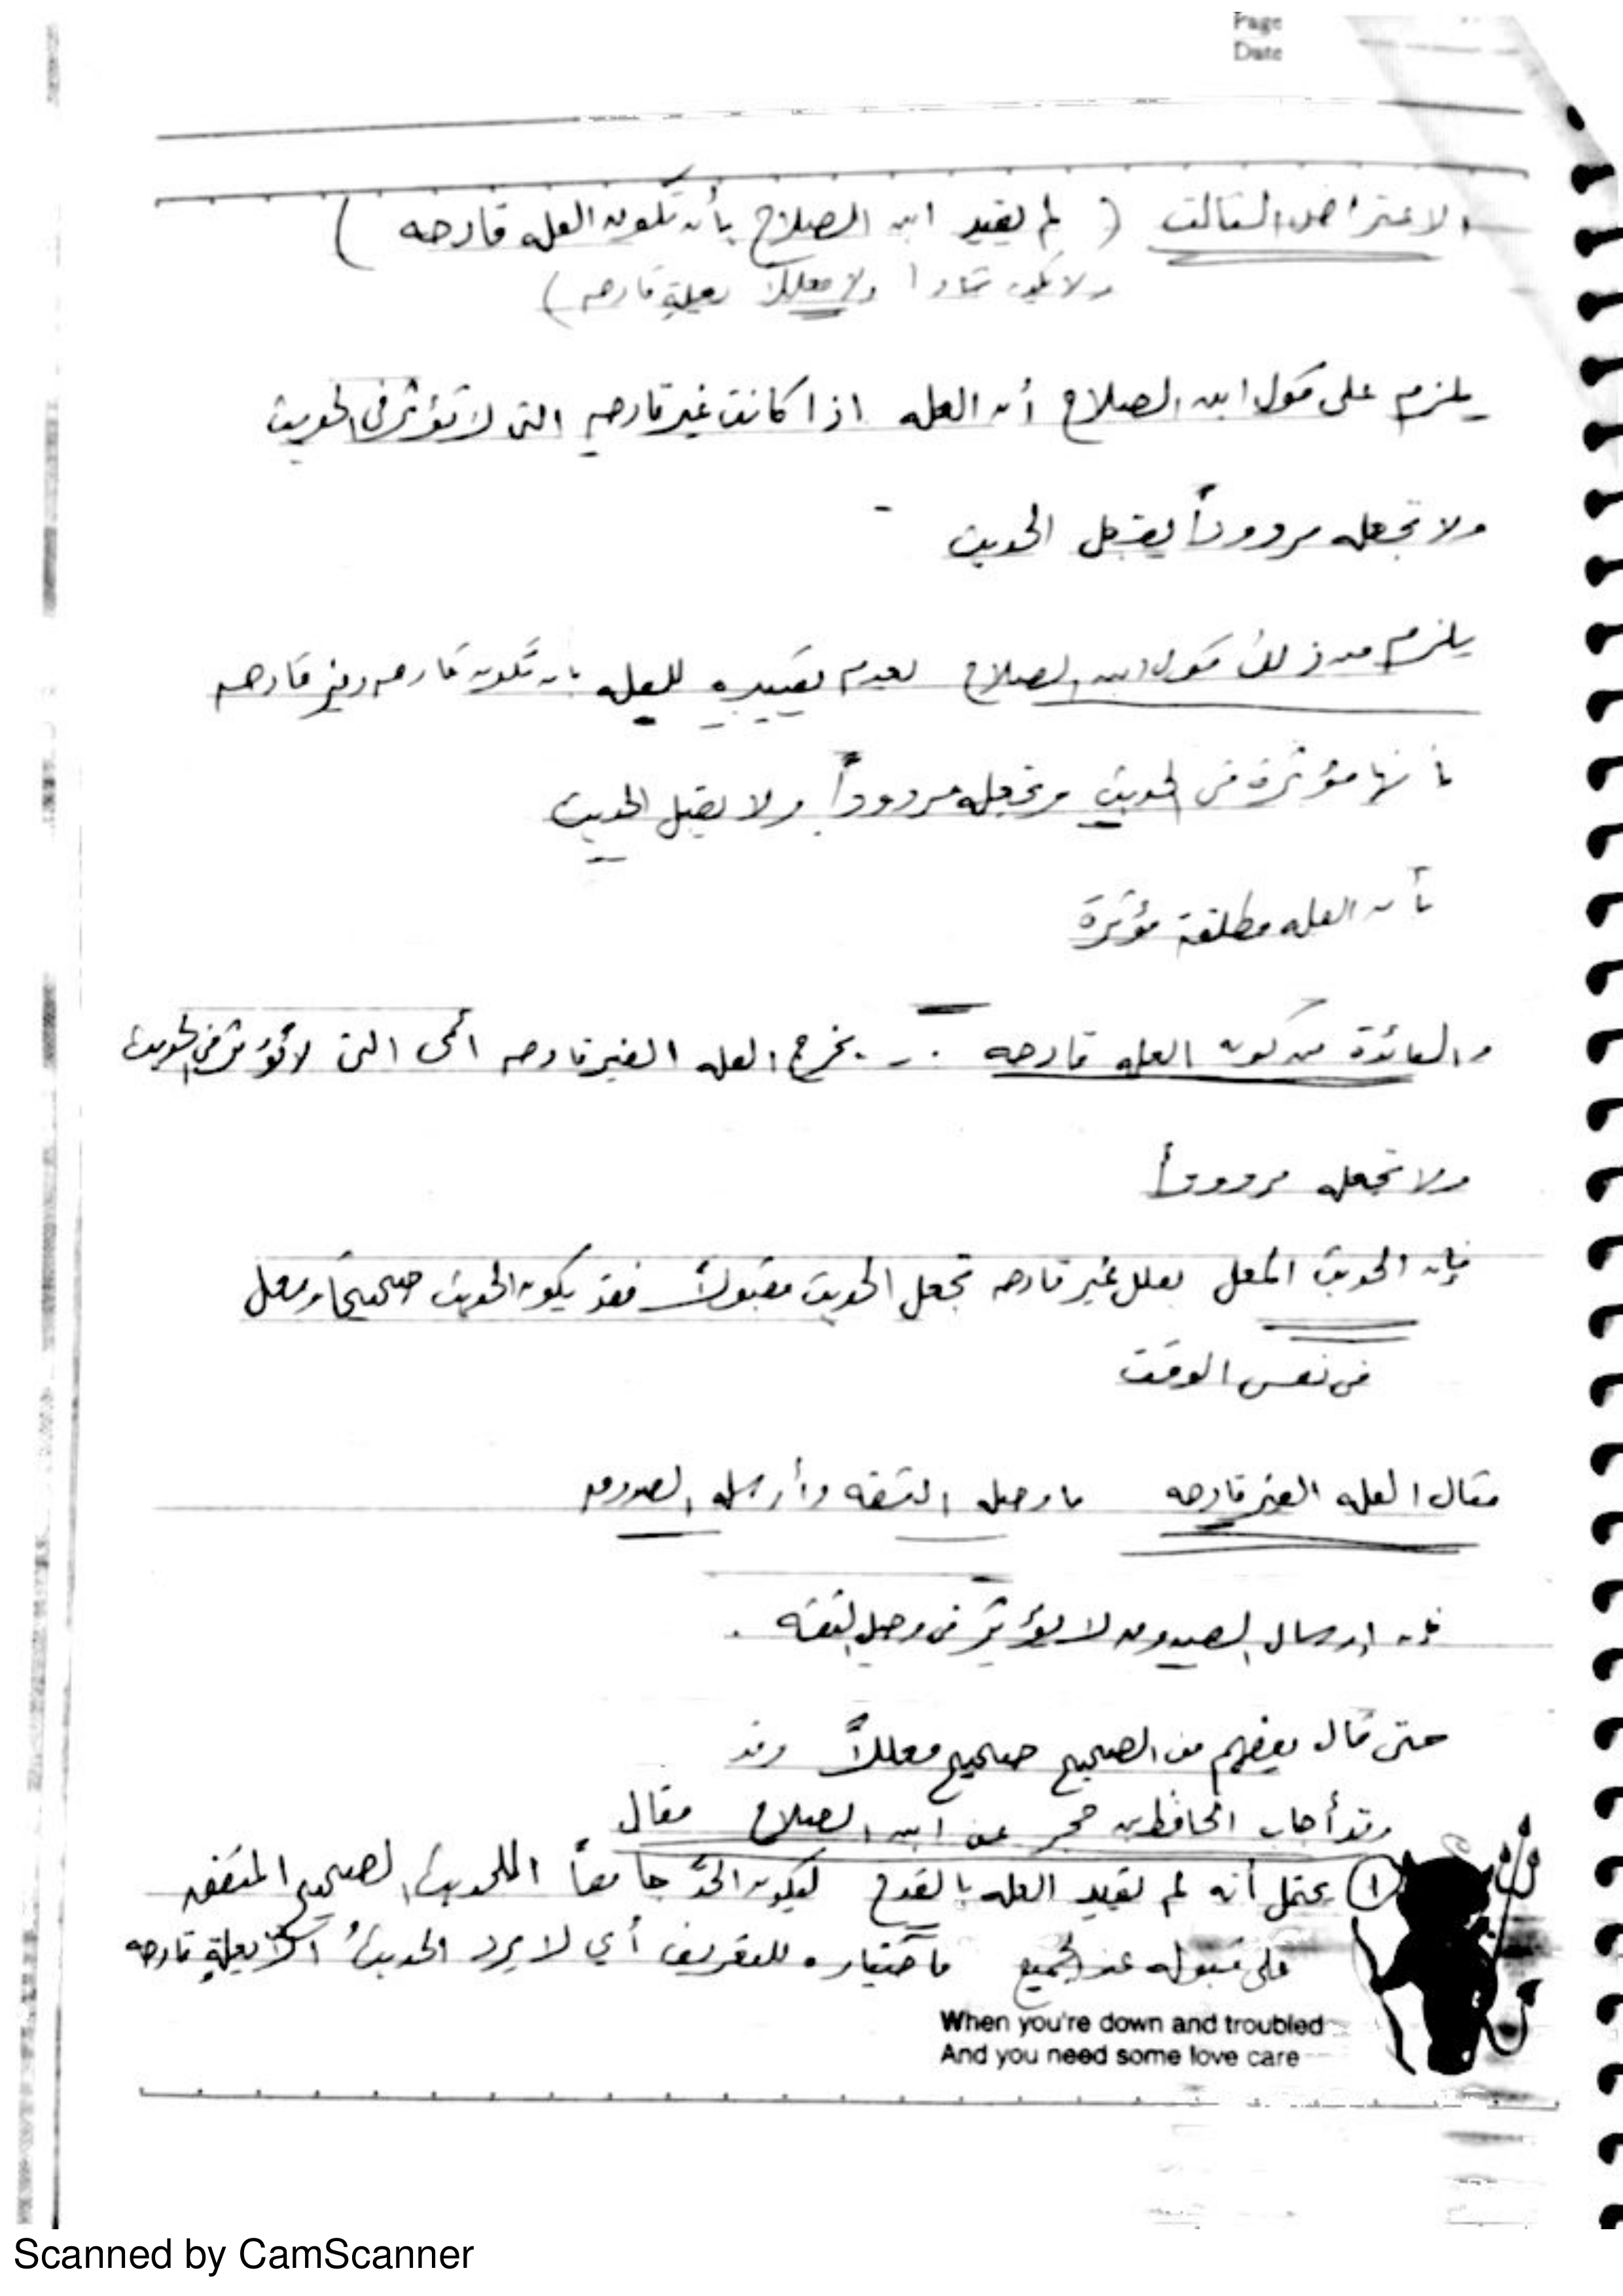 Page
Date
الاعتراض الثالث ( لم يقيد ابن الصلاح بأن تكون العله قادحه )
ولا يكون شاذا ولا معللاً بعلةٍ قادحه )
يلزم على قول ابن الصلاح أن العله اذا كانت غير قادحه التى لا تؤثر فى الحديث
ولا تجعله مردوداً يقبل الحديث
يلزم من ذلك قول ابن الصلاح لعدم تقييده للعله بان تكون قادحه وغير قادحه
بأنها مؤثرة فى الحديث وتجعله مردوداً ولا يقبل الحديث
بأن العله مطلقة مؤثرة
والفائدة من كون العله قادحه .. يخرج العله الغير قادحه أى التى لا تؤثر فى الحديث
ولا تجعله مردوداً
فإن الحديث المعل بعلل غير قادحه تجعل الحديث مقبولاً فقد يكون الحديث صحيحاً ومعل
فى نفس الوقت
مثال العله الغير قادحه ما وصله الثقه وأرسله الصدوق
فإن إرسال الصدوق لا يؤثر فى وصل الثقه .
حتى قال بعضهم من الصحيح صحيح معللاً وقد
وقد أجاب الحافظ بن حجر عن ابن الصلاح فقال
① يحتمل أنه لم يقيد العله بالقدح ليكون الحدُّ جامعاً للحديث الصحيح المتفق
على قبوله عند الجميع فاختياره للتعريف أي لا يرد الحديثُ إلا بعلةٍ قادحه
When you're down and troubled
And you need some love care
Scanned by CamScanner